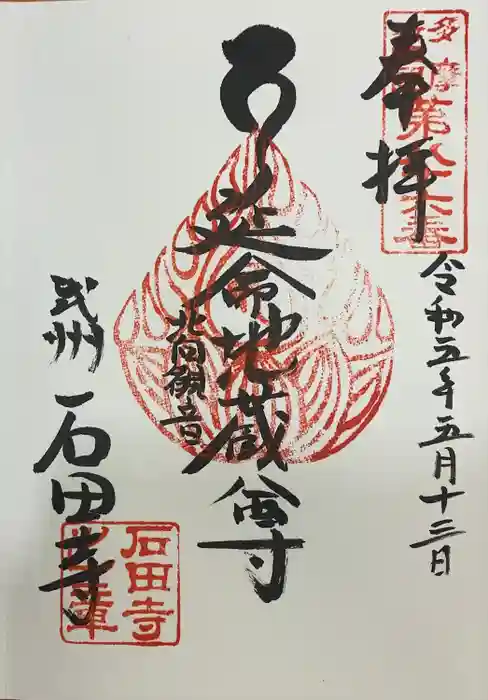 奉拝
多摩
第八十六番
令和五年五月十三日
延命地蔵尊
北向観音
武州
石田寺
石田寺